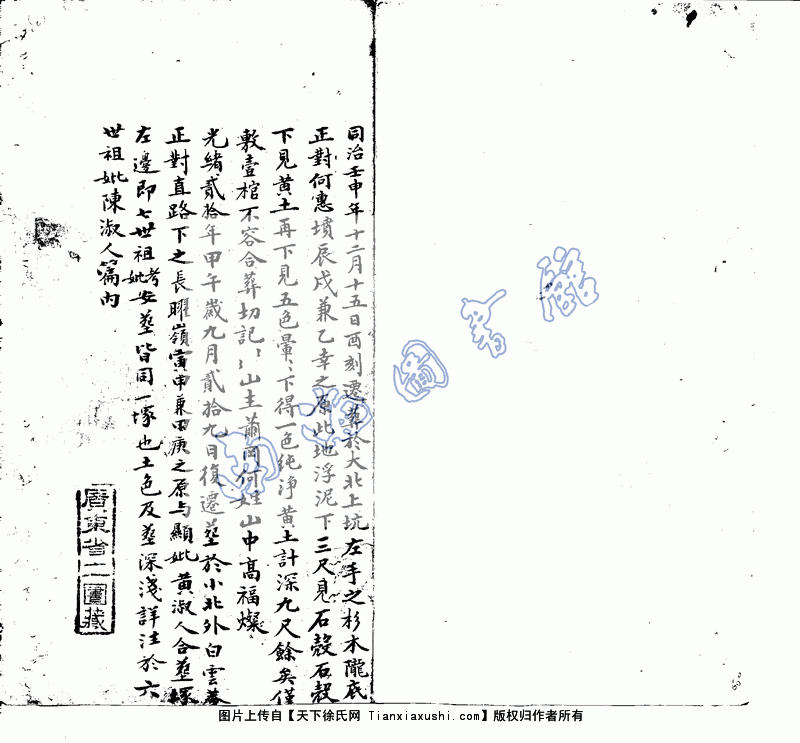 同治壬申年十二月十五日酉刻遷葬於大北上坑左手之杉木隴底
正對何惠墳辰戌兼乙辛之原此地浮泥下三尺見石殼石殼
下見黃土再下見五色暈〻下得一色純淨黃土計深九尺餘矣僅
敷壹棺不容合葬切記〻山主蕭岡何姓山中高福燦
光緒貳拾年甲午歲九月貳拾九日復遷塟於小北外白雲菴
正對直路下之長曜嶺寅申兼甲庚之原与顯妣黃淑人合塟塚
左邊即七世祖考妣安塟皆同一塚也土色及塟深淺詳注於六
世祖妣陳淑人篇內
廣東省立圖藏
图片上传自【天下徐氏网 Tianxiaxushi.com】版权归作者所有